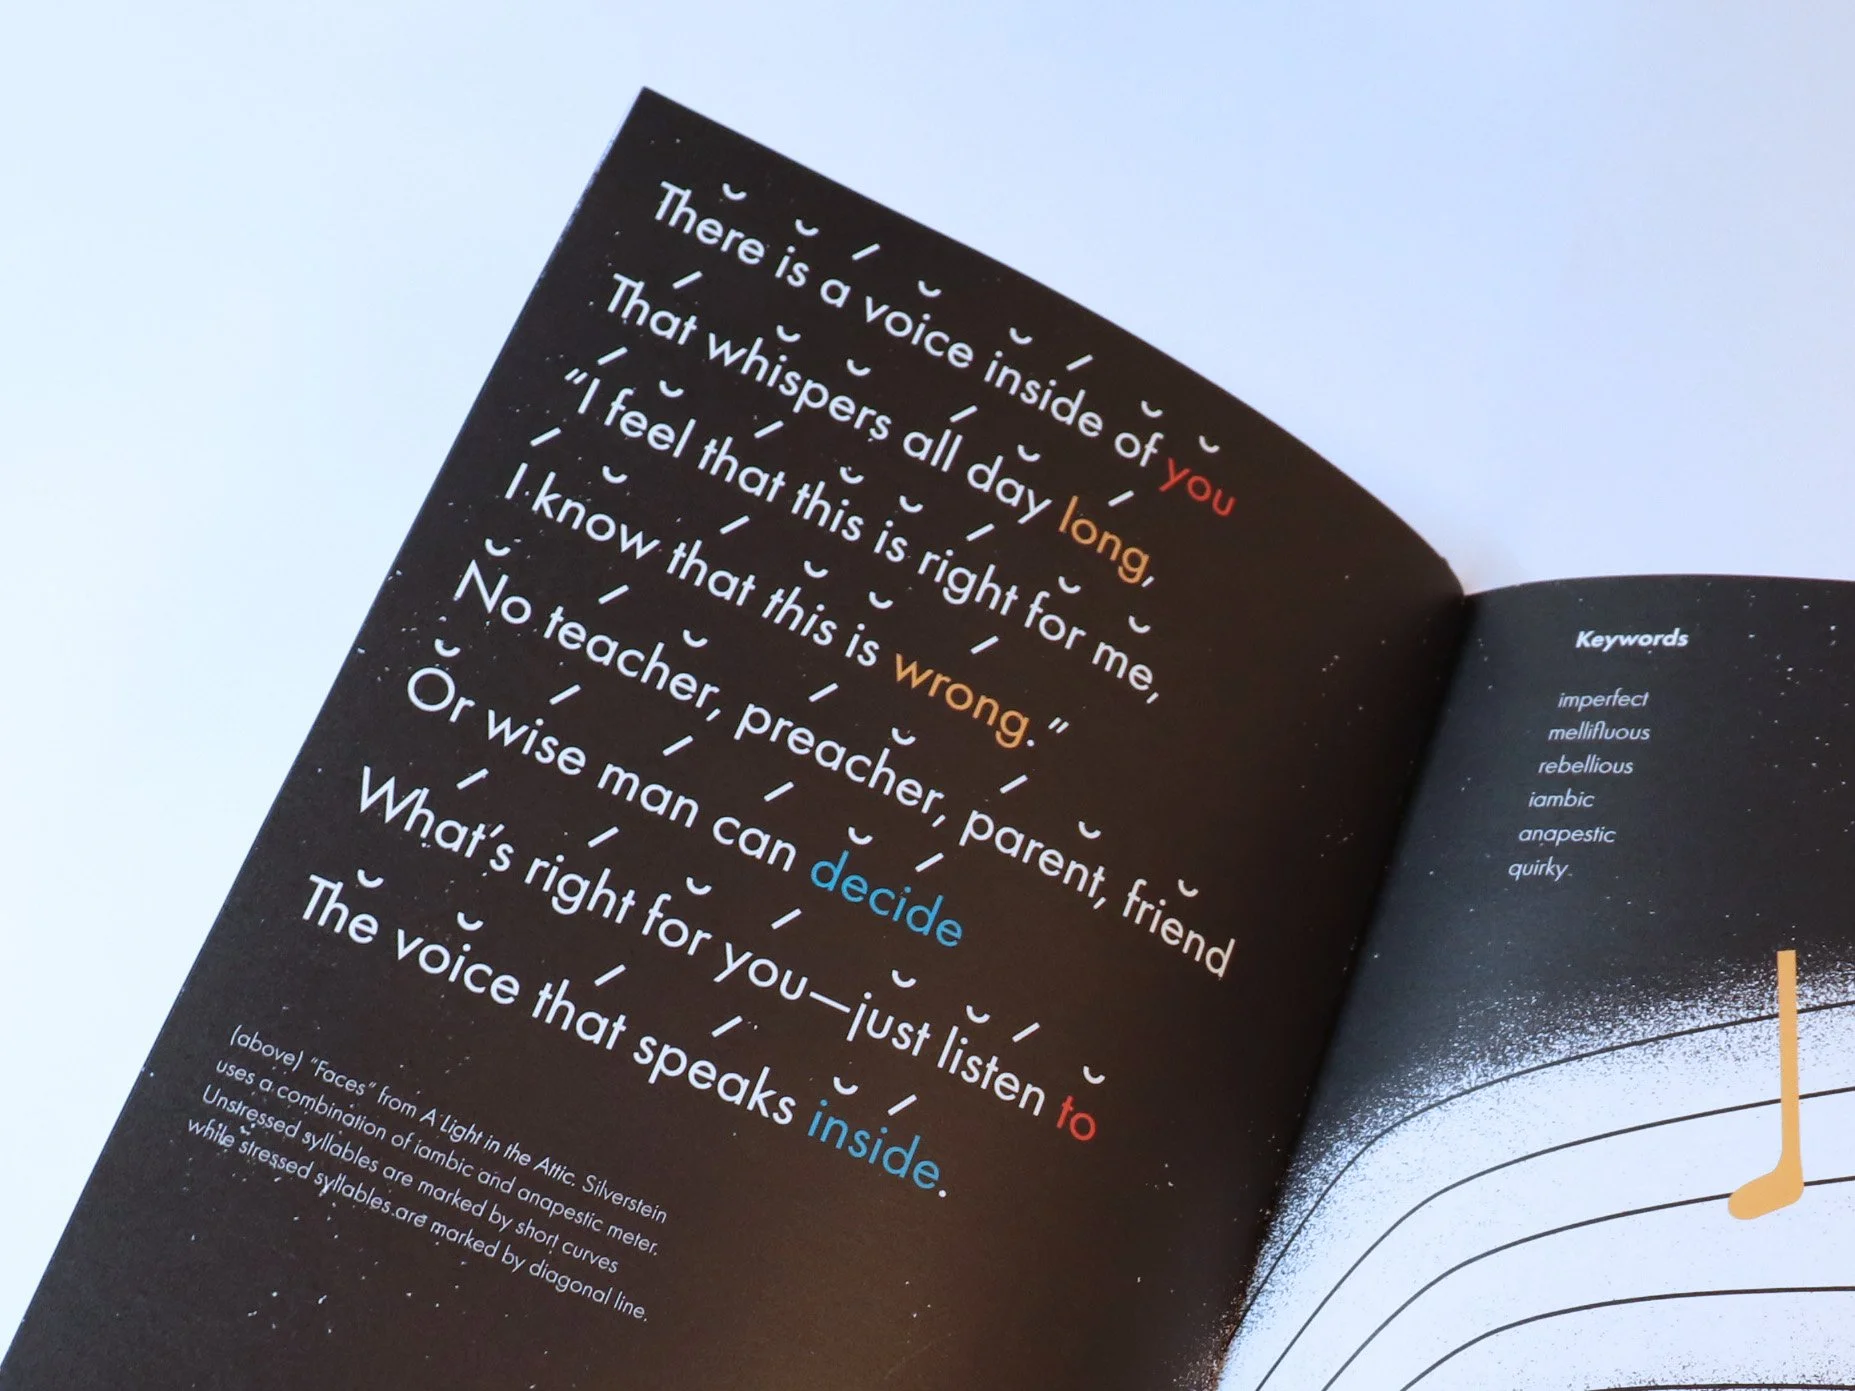 There is a voice inside of you
That whispers all day long,
“I feel that this is right for me,
I know that this is wrong.”
No teacher, preacher, parent, friend
Or wise man can decide
What’s right for you—just listen to
The voice that speaks inside.
(above) “Faces” from A Light in the Attic. Silverstein
uses a combination of iambic and anapestic meter.
Unstressed syllables are marked by short curves
while stressed syllables are marked by diagonal line.
Keywords
imperfect
mellifluous
rebellious
iambic
anapestic
quirky